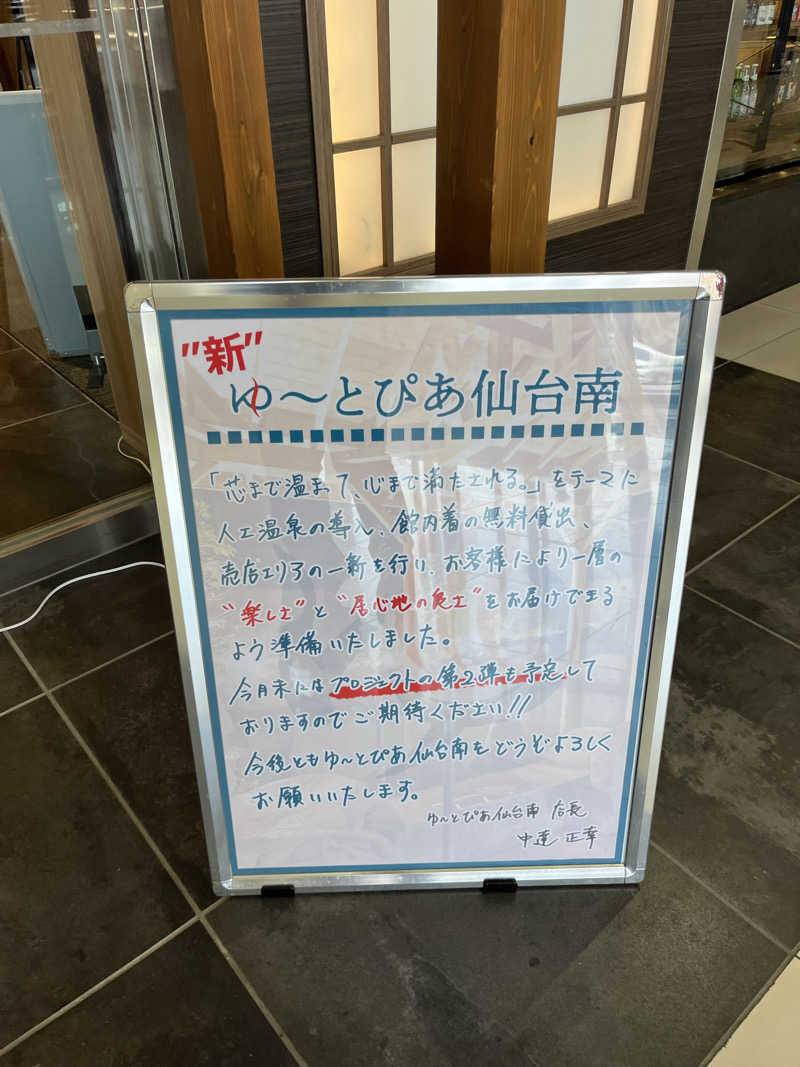 "新"
ゆ～とぴあ仙台南
「芯まで温まって、心まで満たされる。」をテーマに
人工温泉の導入、館内着の無料貸出、
売店エリアの一新を行い、お客様により一層の
"楽しさ"と"居心地の良さ"をお届けできる
よう準備いたしました。
今月末にはプロジェクトの第2弾も予定して
おりますのでご期待ください!!
今後ともゆ～とぴあ仙台南をどうぞよろしく
お願いいたします。
ゆ～とぴあ仙台南 店長
中達 正幸